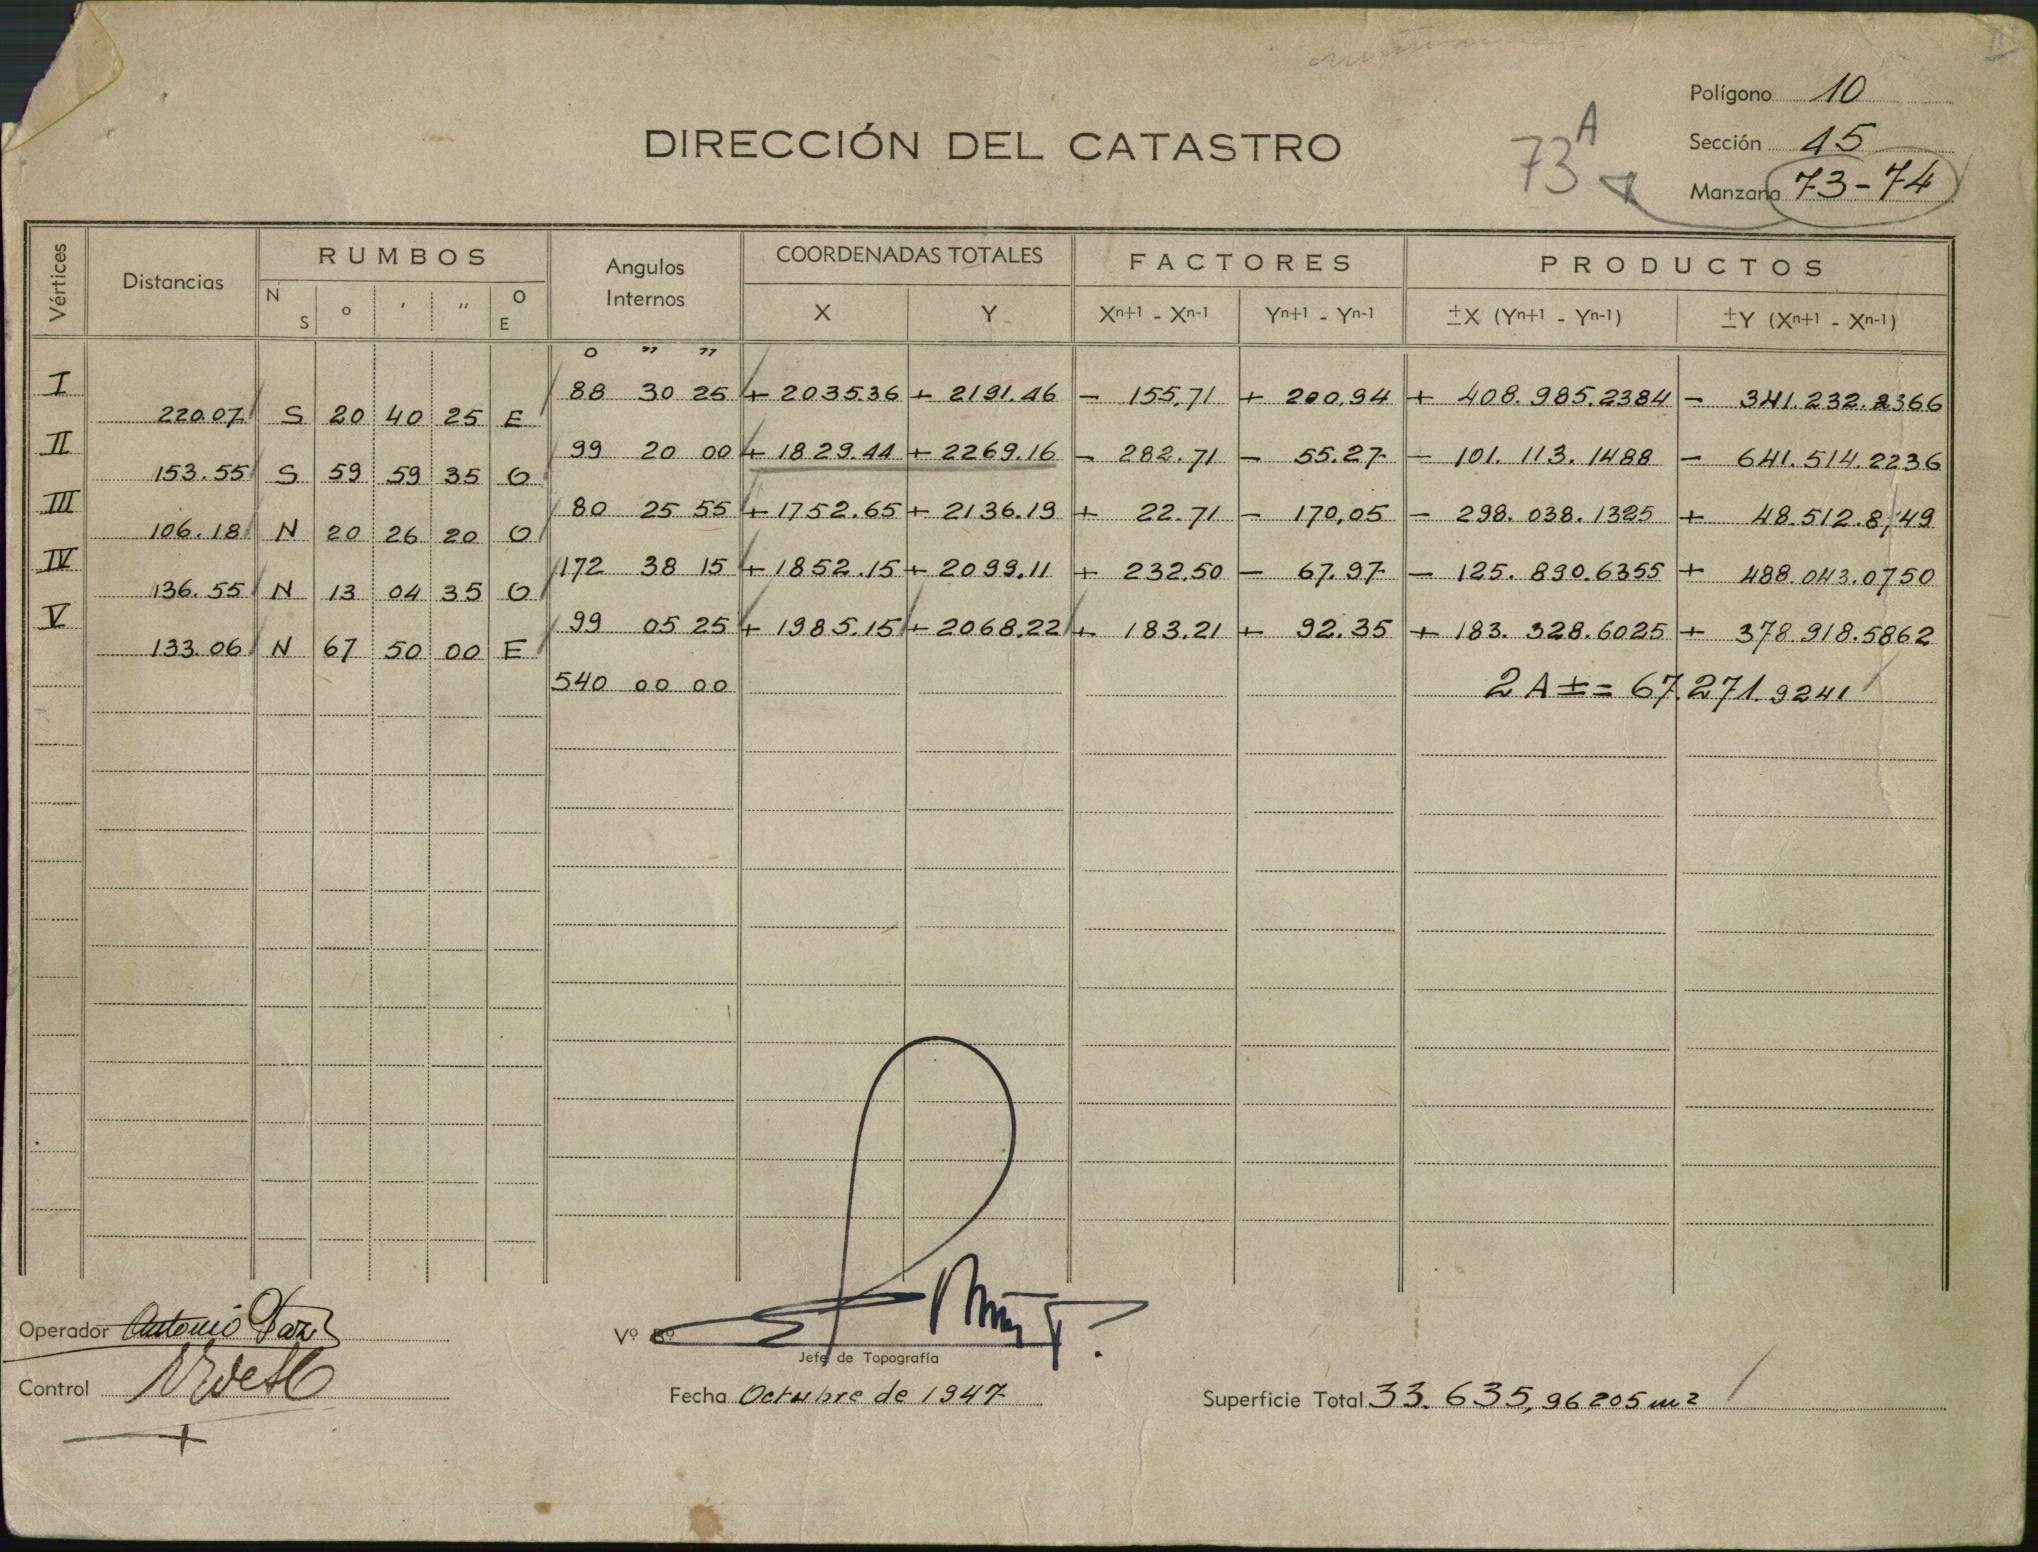 Polígono 10
DIRECCIÓN DEL CATASTRO
73 A
Sección 15
Manzana 73-74
Vértices Distancias RUMBOS Angulos Internos COORDENADAS TOTALES FACTORES PRODUCTOS
N S o ' " O E X Y Xn+1 - Xn-1 Yn+1 - Yn-1 ±X (Yn+1 - Yn-1) ±Y (Xn+1 - Xn-1)
o " "
I 88 30 25 + 2035.36 + 2191.46 - 155,71 + 200,94 + 408.985.2384 - 341.232.2366
220.07 S 20 40 25 E
II 99 20 00 + 1829.44 + 2269.16 - 282.71 - 55.27 - 101.113.1488 - 641.514.2236
153.55 S 59 59 35 O
III 80 25 55 + 1752.65 + 2136.19 + 22.71 - 170,05 - 298.038.1325 + 48.512.8749
106.18 N 20 26 20 O
IV 172 38 15 + 1852.15 + 2099.11 + 232.50 - 67.97 - 125.890.6355 + 488.043.0750
136.55 N 13 04 35 O
V 99 05 25 + 1985.15 + 2068.22 + 183.21 + 92.35 + 183.328.6025 + 378.918.5862
133.06 N 67 50 00 E
540 00 00 2A ± = 67.271.9241
Operador Antonio Paz
Vº Bº
Jefe de Topografía
Control
Fecha Octubre de 1947
Superficie Total 33.635,96205 m2